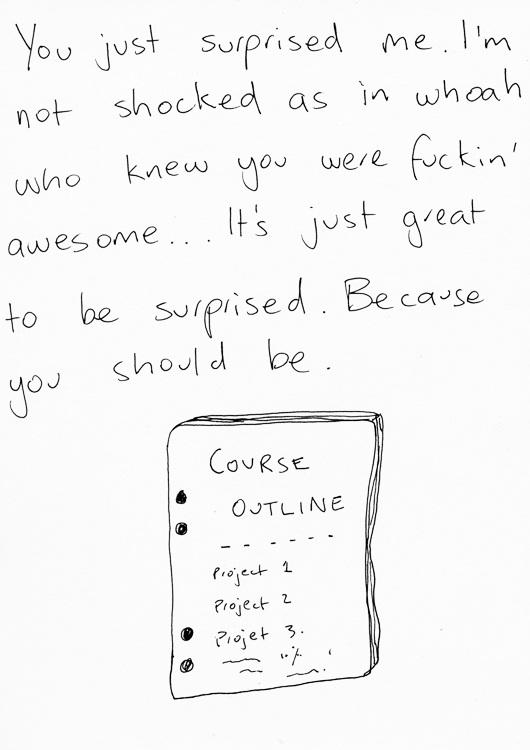 You just surprised me. I'm
not shocked as in whoah
who knew you were fuckin'
awesome... It's just great
to be surprised. Because
you should be.
COURSE
OUTLINE
Project 1
Project 2
Projet 3.